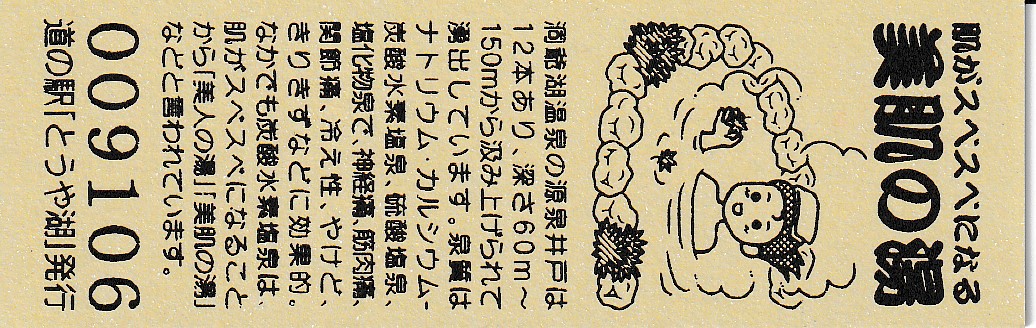 肌がスベスベになる
美肌の湯
洞爺湖温泉の源泉井戸は
12本あり、深さ60m～
150mから汲み上げられて
湧出しています。泉質は
ナトリウム・カルシウム-
炭酸水素塩泉、硫酸塩泉、
塩化物泉で、神経痛、筋肉痛、
関節痛、冷え性、やけど、
きりきずなどに効果的。
なかでも炭酸水素塩泉は、
肌がスベスベになること
から「美人の湯」「美肌の湯」
などと言われています。
009106
道の駅「とうや湖」発行